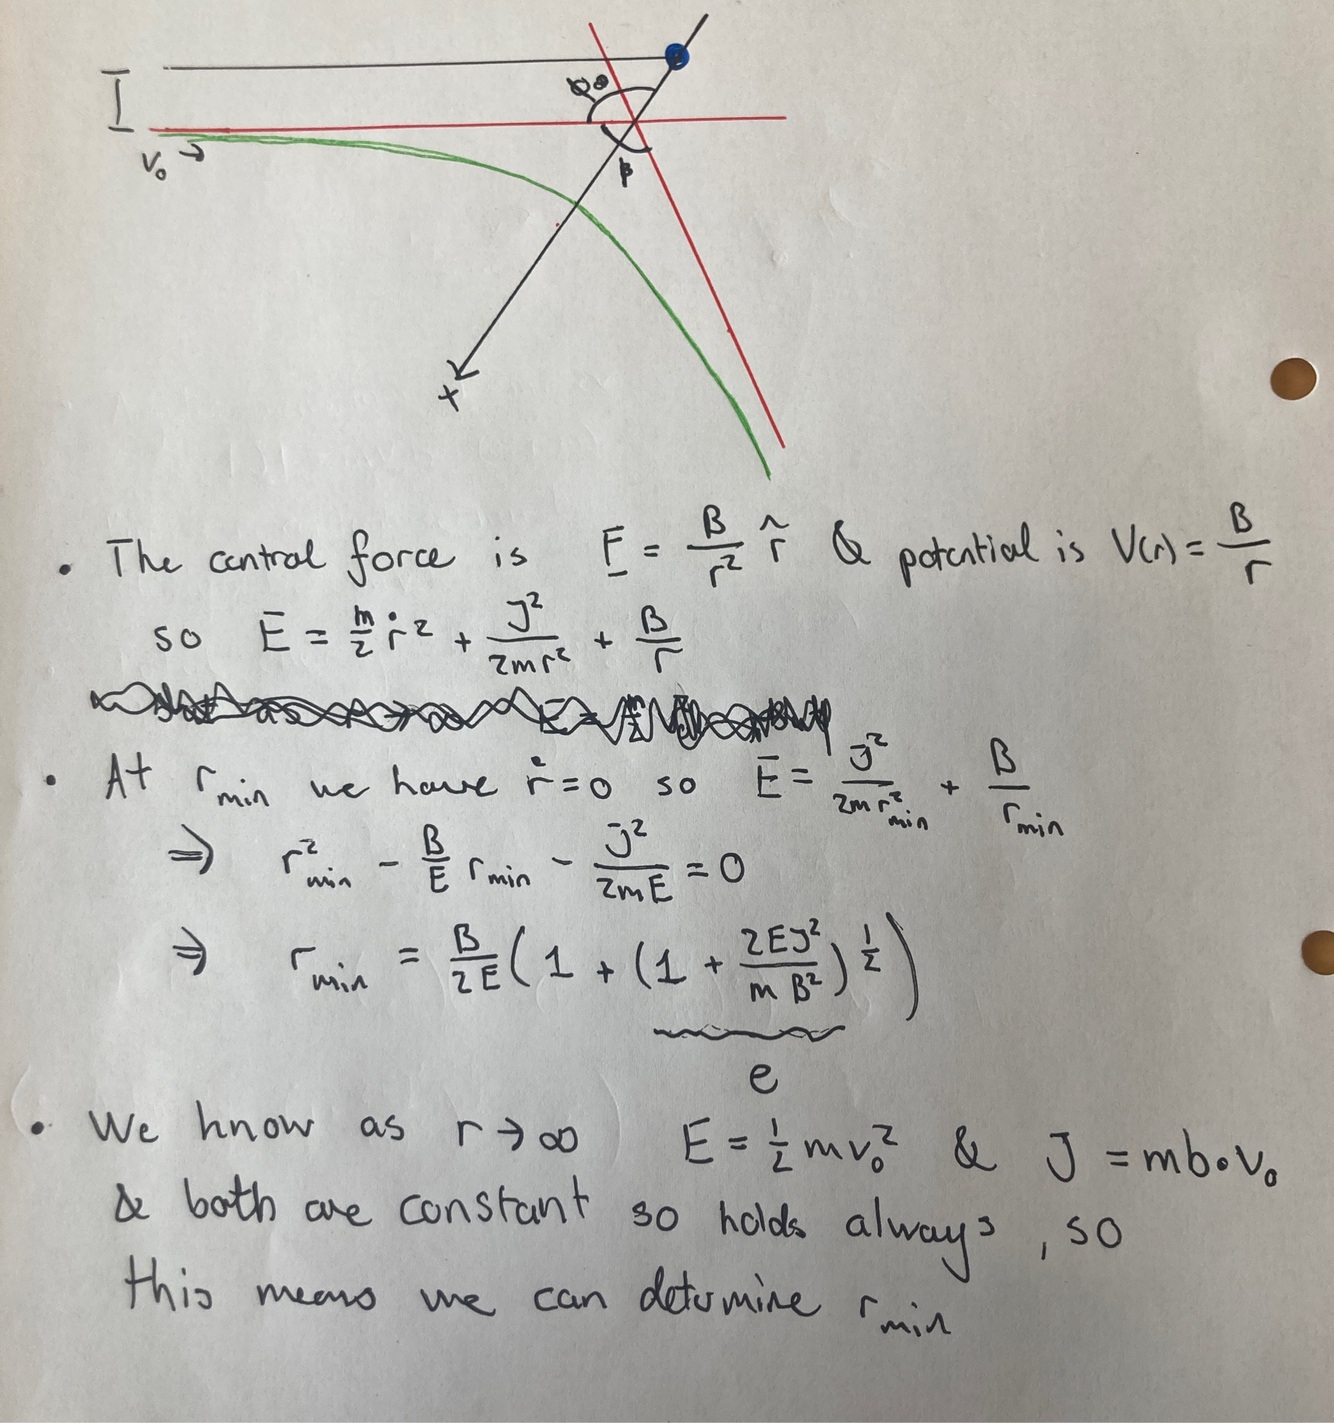 φ∞
V₀ →
β
x
• The central force is F = B/r² r̂ & potential is V(r) = B/r
so E = m/2 ṙ² + J²/2mr² + B/r
• At r_min we have ṙ=0 so E = J²/2mr²_min + B/r_min
⇒ r²_min - B/E r_min - J²/2mE = 0
⇒ r_min = B/2E (1 + (1 + 2EJ²/mB²)^½)
e
• We know as r→∞ E = ½mv₀² & J = mb•v₀
& both are constant so holds always, so
this means we can determine r_min